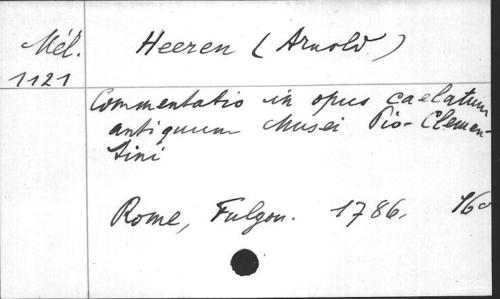 Mél.
1121
Heeren (Arnold)
Commentatio in opus caelatum
antiquum Musei Pio-Clemen-
tini
Rome, Fulgon. 1786. 16º